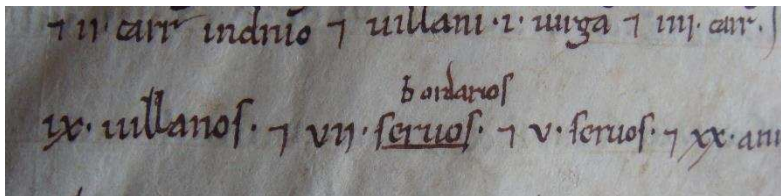 ⁊ ii· carr̃ indnĩo ⁊ uillani ·i· uirgã ⁊ iiii· carr̃·
bordarios
ix· uillanos· ⁊ vii· seruos· ⁊ v· seruos· ⁊ xx· ani